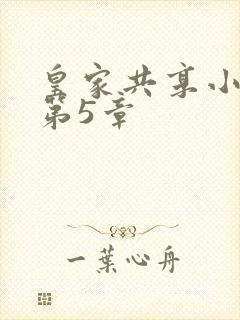 皇家共享小
第5章
一葉心舟